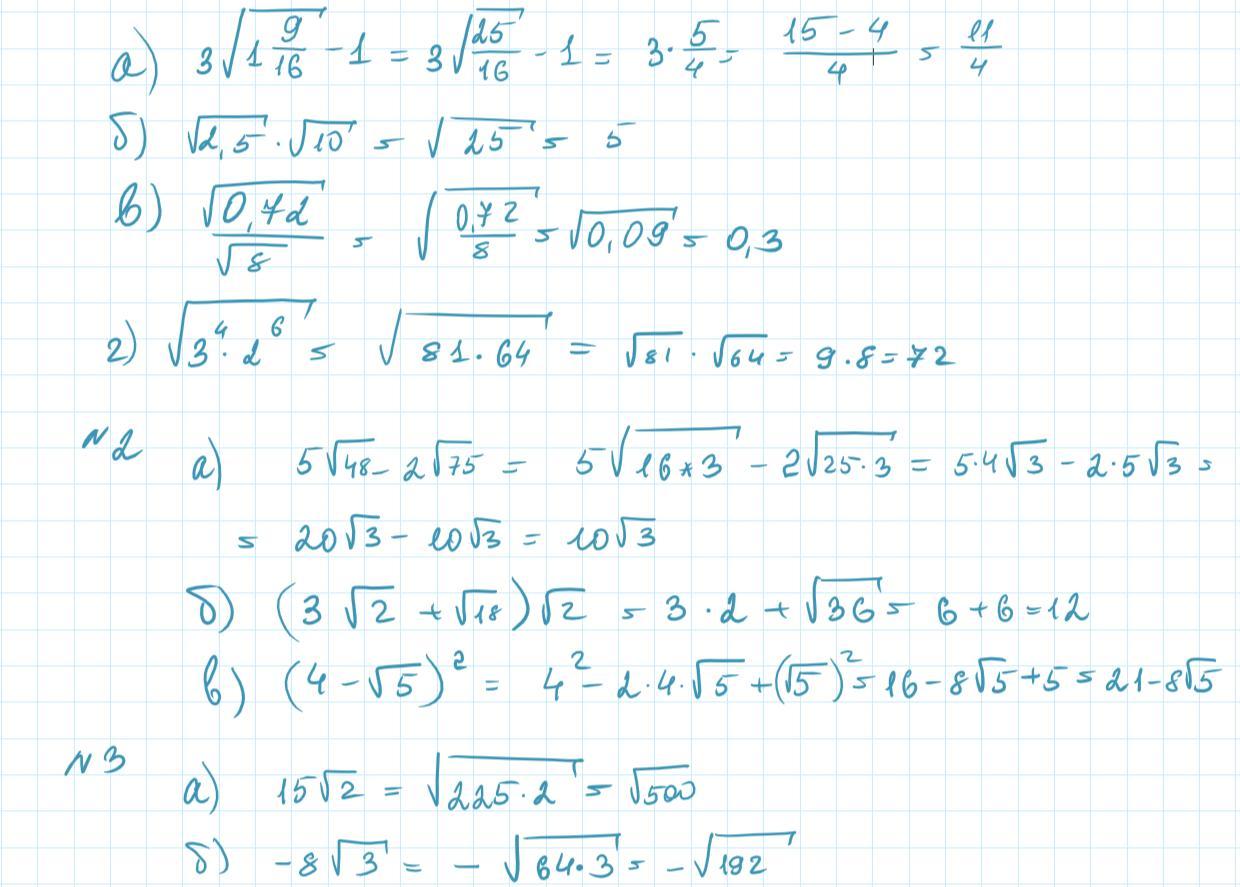 а) 3√(1 9/16) - 1 = 3√(25/16) - 1 = 3 · 5/4 = (15 - 4)/4 = 11/4
б) √2,5 · √10 = √25 = 5
в) √0,72/√8 = √(0,72/8) = √0,09 = 0,3
г) √(3⁴ · 2⁶) = √(81 · 64) = √81 · √64 = 9 · 8 = 72
№2 а) 5√48 - 2√75 = 5√(16*3) - 2√(25 · 3) = 5·4√3 - 2·5√3 =
= 20√3 - 10√3 = 10√3
б) (3√2 + √18)√2 = 3 · 2 + √36 = 6 + 6 = 12
в) (4 - √5)² = 4² - 2·4·√5 + (√5)² = 16 - 8√5 + 5 = 21 - 8√5
№3 а) 15√2 = √(225 · 2) = √500
б) -8√3 = -√(64·3) = -√192